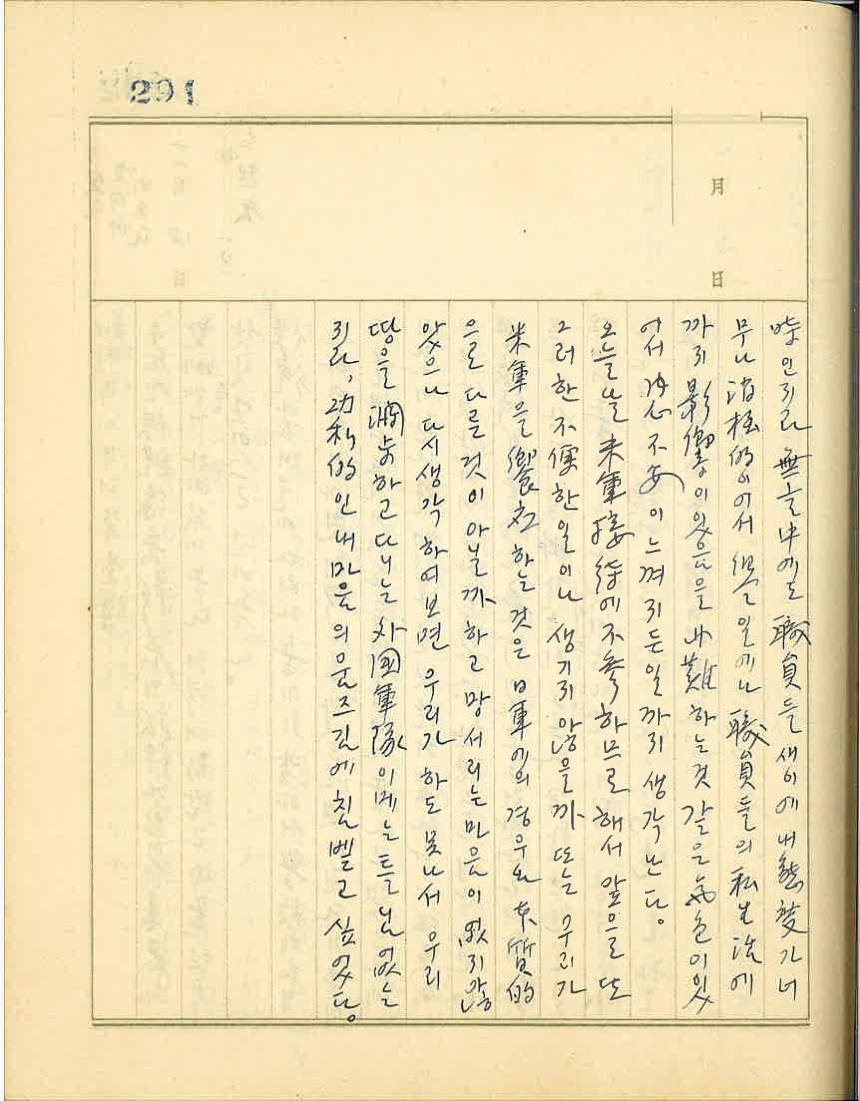 291
月 日
때인지라 無言中에도 職員들 새이에 내 態度가 너
무나 消極的이어서 組合일에나 職員들의 私生活에
까지 影響이 있음을 非難하는 것 같은 氣色이 있
어서 내心 不安이 느껴지든 일까지 생각난다.
오늘날 米軍接待에 不參하므로 해서 앞으로 또
그러한 不便한 일이나 생기지 않을까 또는 우리가
米軍을 饗應하는 것은 日軍에의 경우와 本質的
으로 다를 것이 아닐까 하고 망서리는 마음이 없지 않
았으나 다시 생각하여보면 우리가 하도 못나서 우리
땅을 하고 다니는 外國軍隊이메는 틀님없는
지라, 功利的인 내 마음의 움즈김에 침 벹고 싶었다.